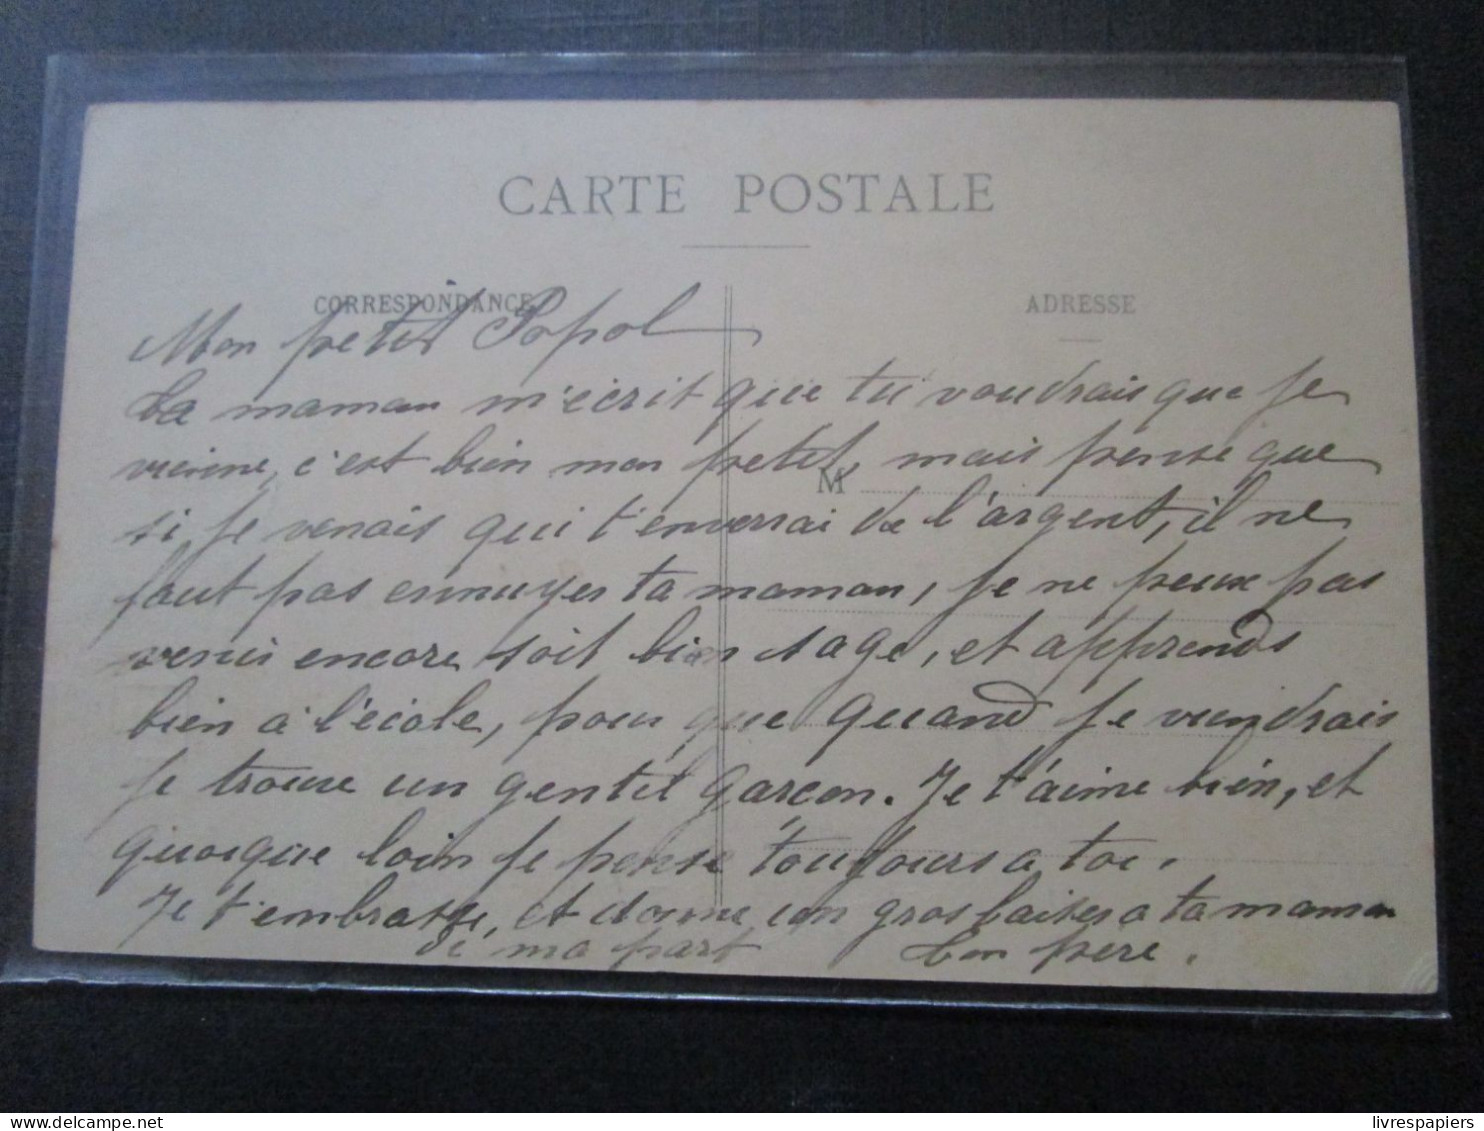 CARTE POSTALE
CORRESPONDANCE
ADRESSE
Mon petit Popol
Ta maman m'écrit que tu voudrais que je
vienne, c'est bien mon petit, mais pense que
M
si je venais qui t'enverrai de l'argent, il ne
faut pas ennuyer ta maman, je ne peux pas
venir encore soit bien sage, et apprends
bien à l'école, pour que quand je viendrais
je trouve un gentil garçon. Je t'aime bien, et
quoique loin je pense toujours a toi.
Je t'embrasse, et donne un gros baiser a ta maman
de ma part Ton père.
livrespapiers